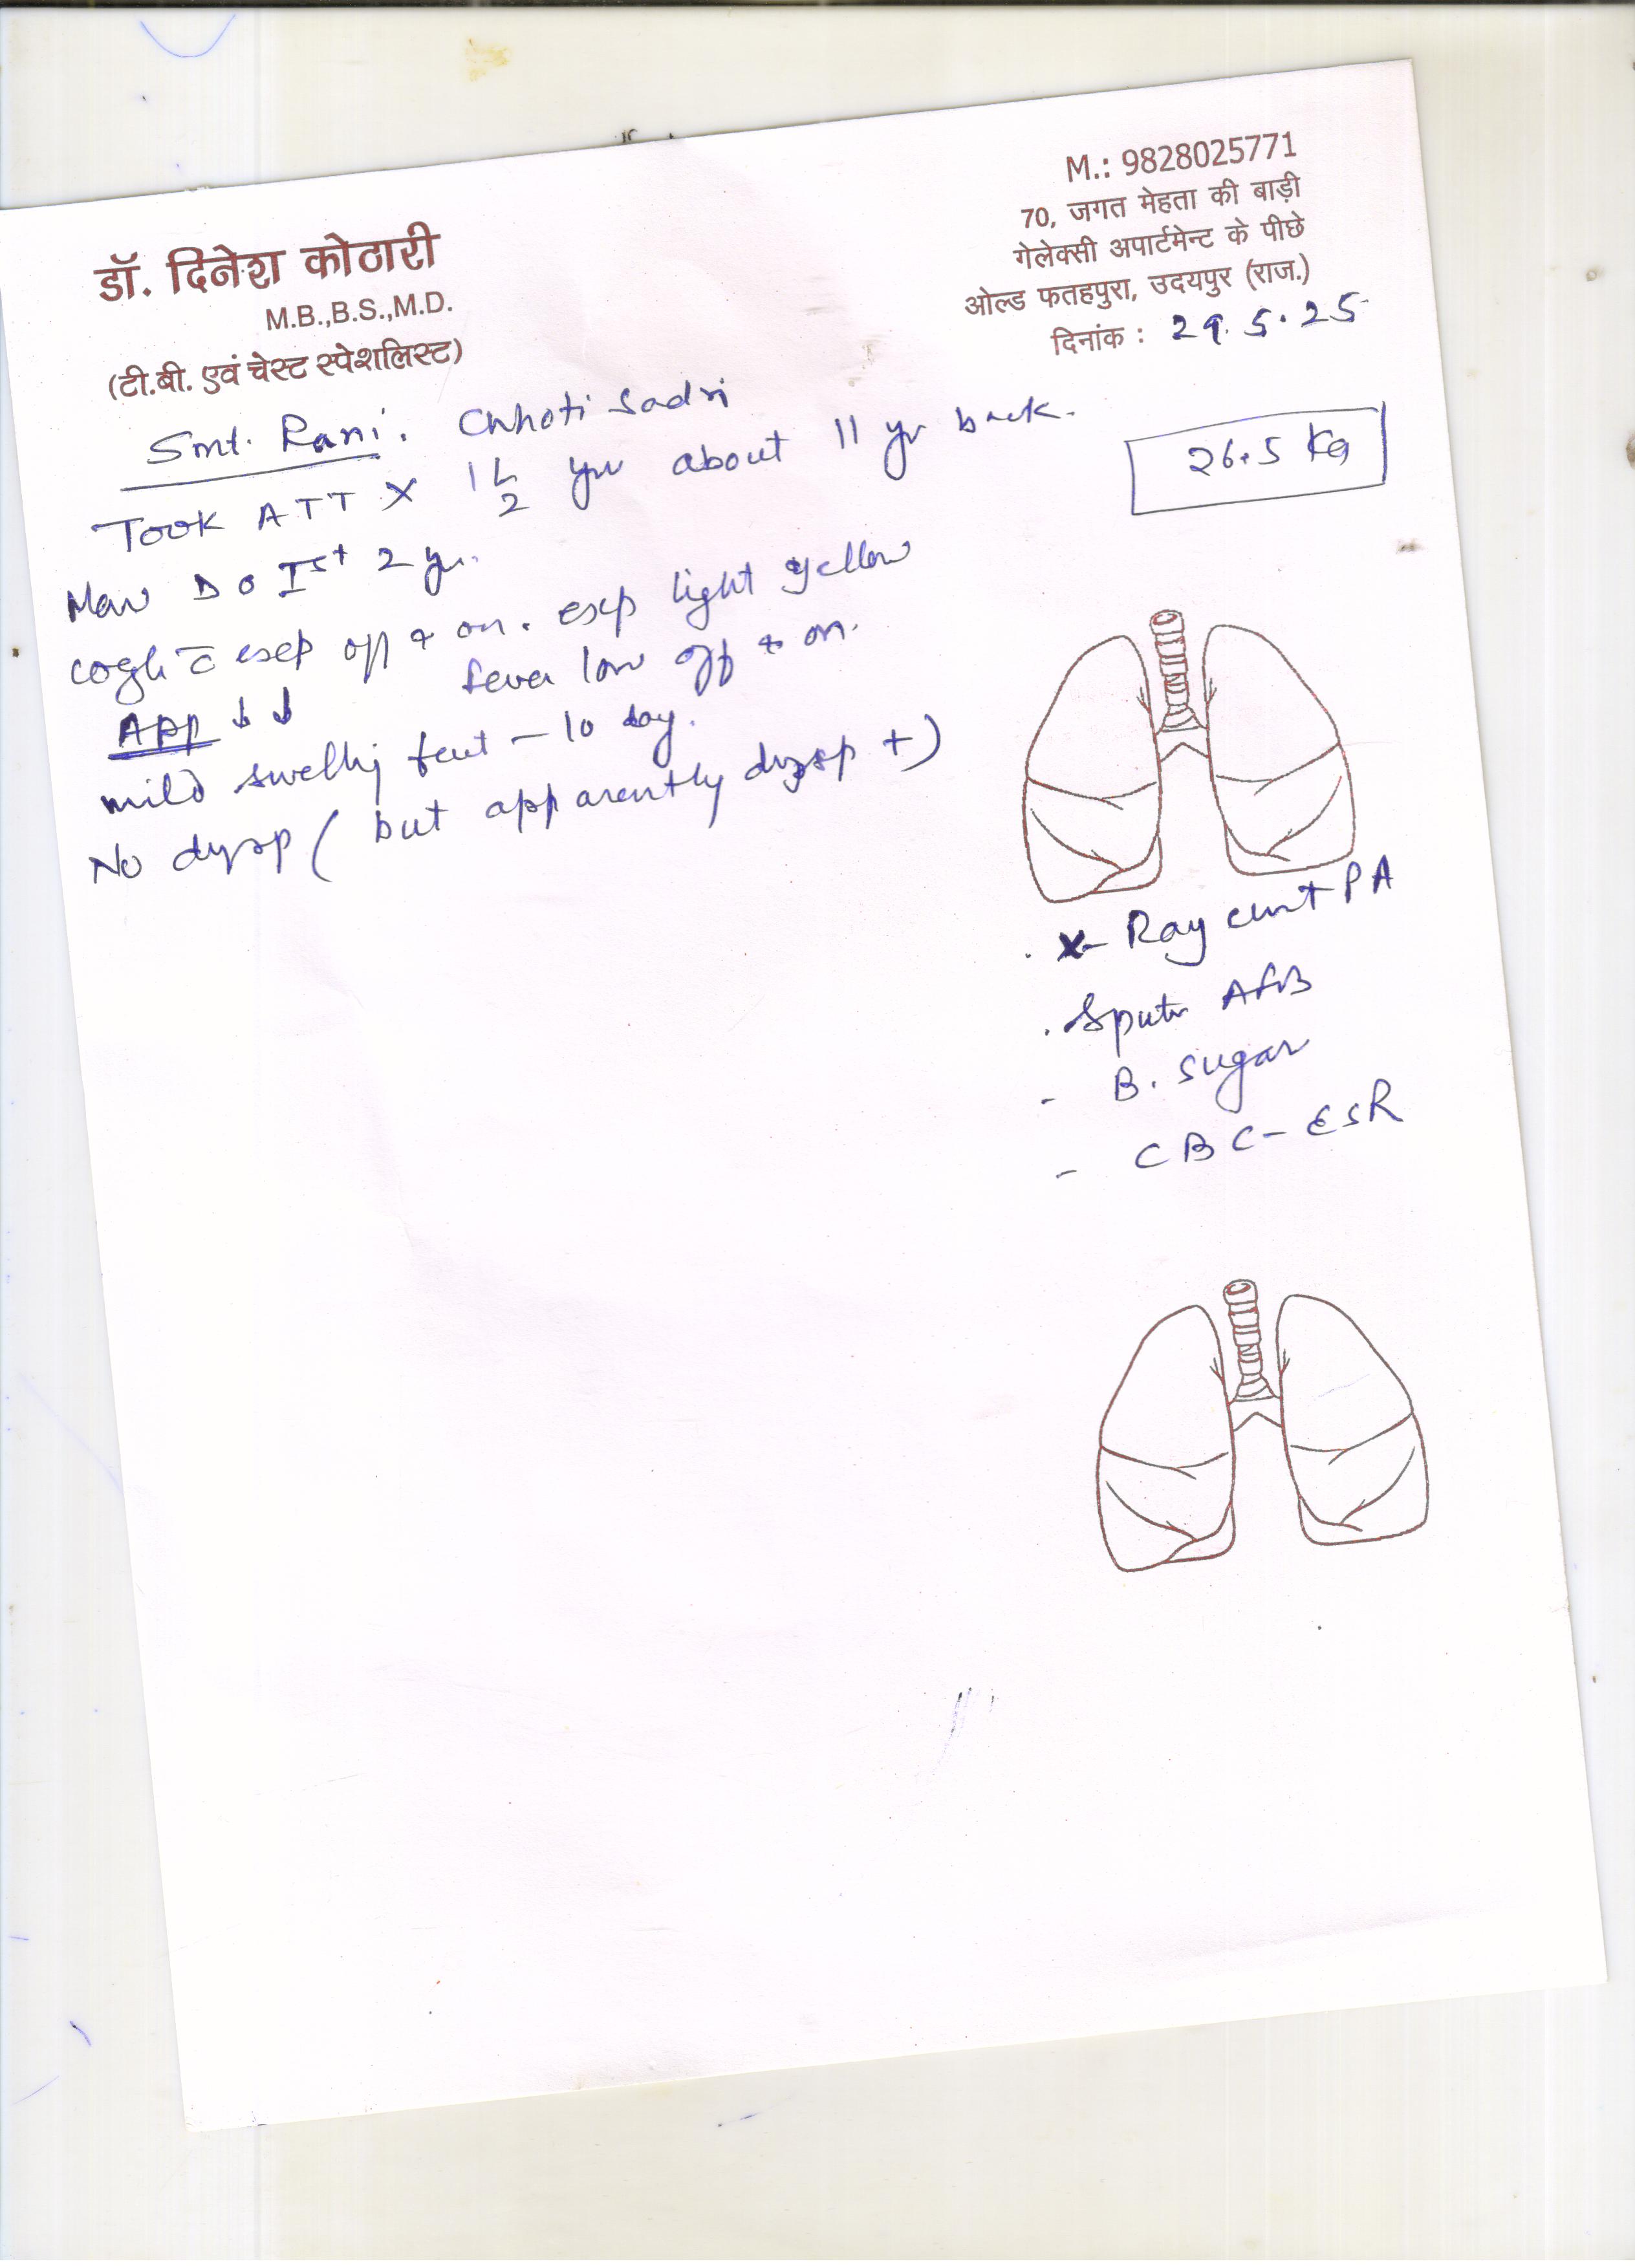 डॉ. दिनेश कोठारी
M.B.,B.S.,M.D.
(टी.बी. एवं चेस्ट स्पेशलिस्ट)
M.: 9828025771
70, जगत मेहता की बाड़ी
गेलेक्सी अपार्टमेन्ट के पीछे
ओल्ड फतहपुरा, उदयपुर (राज.)
दिनांक : 29.5.25
Smt. Rani. Chhoti Sadri
26.5 Kg
Took ATT X 1 1/2 yr about 11 yr back.
Now D O Ist 2 yr.
cogh c̄ exp off & on. exp light yellow
fever low off & on.
App ↓ ↓
mild swellij feet – 10 day.
No dysp ( but apparently dysp +)
. X- Ray chest PA
. Sputm AFB
- B. Sugar
- CBC - ESR